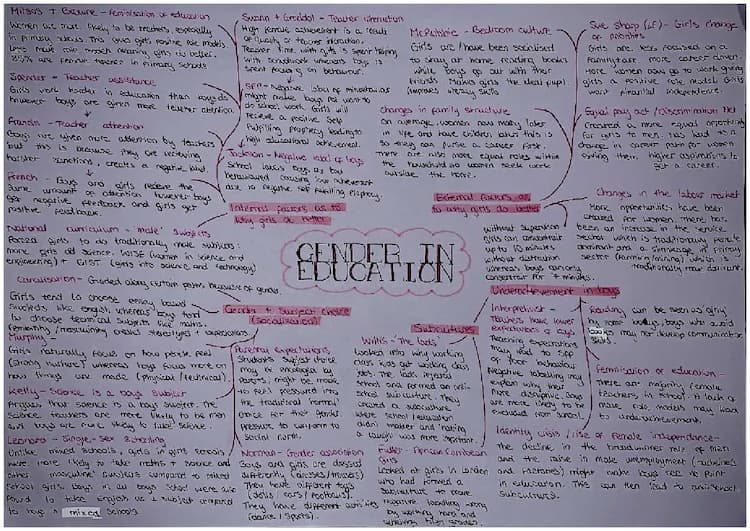 Mitsos + Browne - Feminisation of education
Women are more likely to be teachers, especially
in primary schools. This gives girls positive role models
role models meaning girls do better.
85% are female teachers in primary schools
Spender - Teacher assistance
Girls work harder in education than boys do
however boys are given more teacher attention.
Francis - Teacher attention
Boys get when more attention by teachers
but this is because they are receiving
harsher sanctions, creates a negative label.
French - Boys and girls receive the
same amount of attention however boys
get negative feedback and girls get
positive feedback.
National curriculum - 'male' subjects
Forced girls to do traditionally male subjects.
maths, girls did science. WISE (women in science and
engineering) + GIST (girls into science and technology)
Swann + Graddol - Teacher interaction
High female achievement is a result
of quality of teacher interaction.
Teacher time with girls is spent helping
with schoolwork whereas boys is
spent focusing on behaviour.
SFP - Negative labelling of
might make boys not want to
do school work. Girls will
recieve a positive self
fulfilling prophecy leading to
high educational achievement.
Jackson - Negative label of boys
School labels boys as bad
behaviour causing low achievement
due to negative self fulfilling prophecy.
Internal factors as to
why girls do better
McRobbie - Bedroom culture
Girls are/have been socialised
to stay at home reading books
while boys go out with their
friends. Makes girls the ideal pupil
improves literacy skills.
Changes in family structure
On average, women now marry later
in life and have children later. This is
so they can pursue a career first.
There are also more equal roles within
the household so women seek work
outside the home.
Sue Sharpe (LF) - Girls change
of priorities
Girls are less focused on a
family + are more career driven.
More women going to work giving
girls a positive role model. Girls
want financial independence.
Equal pay act / Discrimination Act
Created a more equal opportunity
for girls to men. Has lead to a
change in career path for women
giving them higher aspirations to
get a career.
External factors as
to why girls do better
Changes in the labour market
More opportunities have been
created for women. There has
been an increase in the service
sector which is traditionally female
dominant and a shrinkage in primary
sector (farming/mining) which is
traditionally male dominant.
GENDER IN
EDUCATION
without supervision
girls can concentrate
up to 10 minutes
without distraction
whereas boys can only
concentrate for 4 minutes.
Underachievement in boys
Interpretivist -
Teachers have lower
expectations of boys
Teachers expectations
may lead to SFP
of poor behaviour.
Negative labelling may
explain why they're
more disruptive. Boys
are more likely to be
excluded from school.
Reading can be seen as 'girly'
by most boys, boys who avoid
books may not develop communication
skills.
Feminisation of education -
There are majority female
teachers in school. A lack of
male role models may lead
to underachievement.
Identity crisis / rise of female independence -
The decline in the breadwinner role of men
and the raise in male unemployment (industries
and factories) might make boys see no point
in education. This can then lead to anti-school
subcultures.
Canalisation - Guided along certain paths because of gender.
Girls tend to choose essay based
subjects like english whereas boys tend
to choose technical subjects like maths.
Femininity/masculinity creates stereotypes + expectations.
Gender + Subject choice
(Socialisation)
Murphy -
Girls naturally focus on how people feel
(caring/nurture) whereas boys focus more on
how things are made (physical/technical).
Kelly - Science is a boys subject
Argues that science is a boys subject. The
science teachers are more likely to be men
and boys are more likely to 'take' science.
Leonard - Single-Sex Schooling
Unlike mixed schools, girls in girls schools
were more likely to take maths + science and
other 'masculine' subjects compared to mixed
school girls. Boys in all boys school were also
found to take english as a subject compared
to boys in mixed schools.
Parental expectations
Students subject choice
may be encouraged by
parents, might be made
to feel pressured into
the traditional 'normal'
choice for their gender.
Pressure to conform to
social norm.
Norman - Gender association
Boys and girls are dressed
differently (dresses/trousers)
They have different toys
(dolls/cars/footballs).
They have different activities
(dance/sports).
Subcultures
Willis - 'The lads'
Looked into why working
class kids get working class
jobs. The lads disliked
school and formed an anti-
school subculture. They
created a subculture
where school/education
didn't matter and 'having
a laugh' was more important.
Fuller - African Caribbean
girls
Looked at girls in London
who had formed a
subculture to reject
negative labelling
by working hard and
achieving high grades.